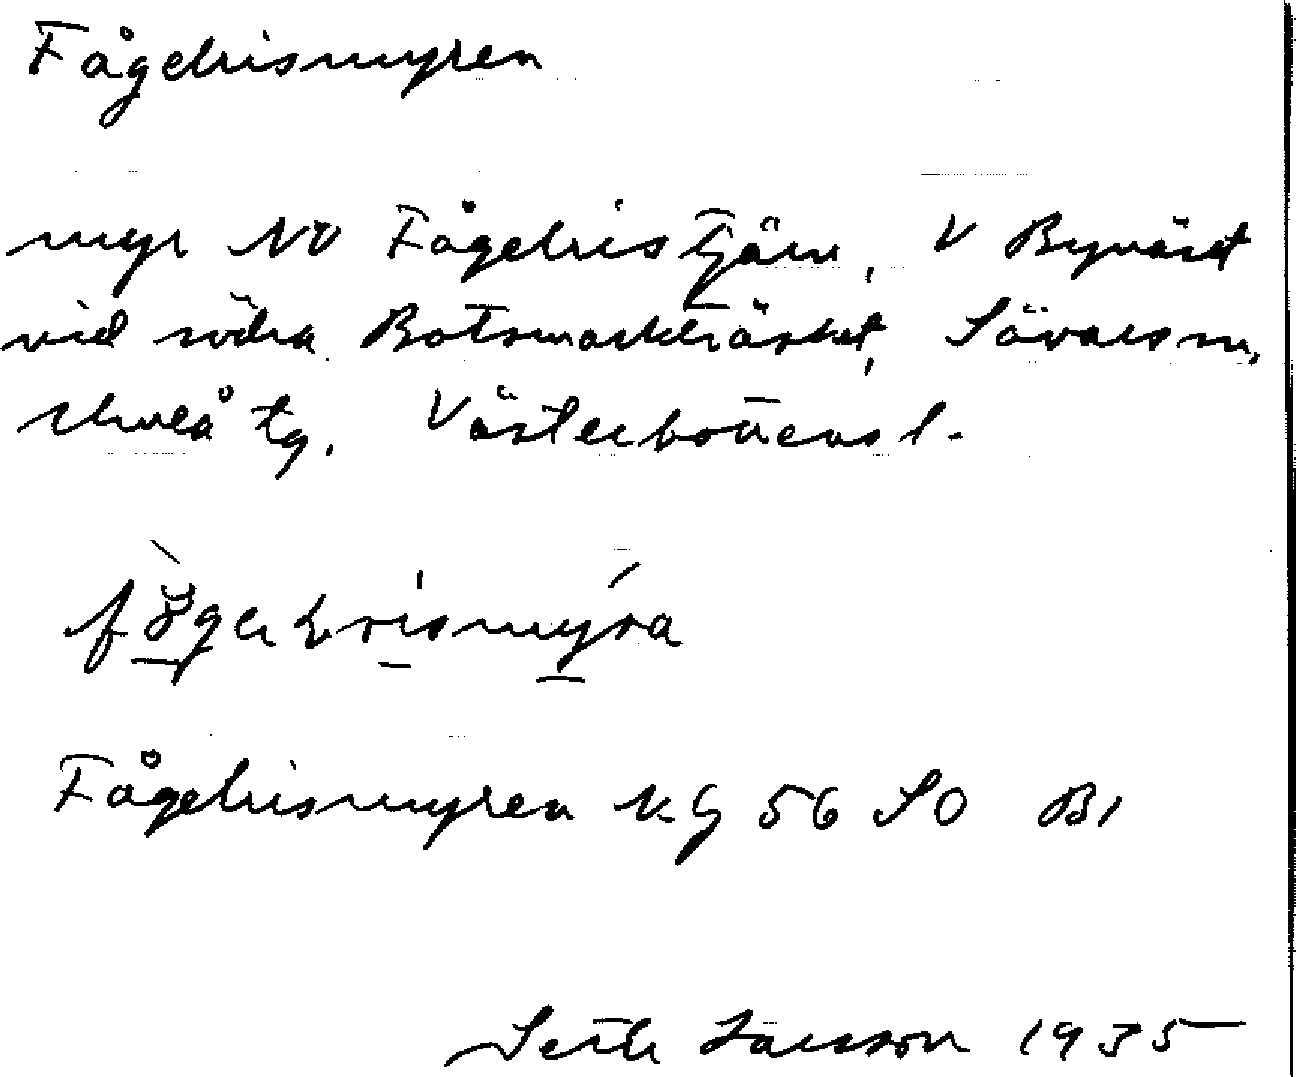 Fågelrismyren
myr NO Fågelristjärn, V Bynäset
vid södra Botsmarkträsket, Sävars sn,
Umeå tg. Västerbottens l.
Fågelrismyren KG 56 SO B1
Seth Larsson 1935